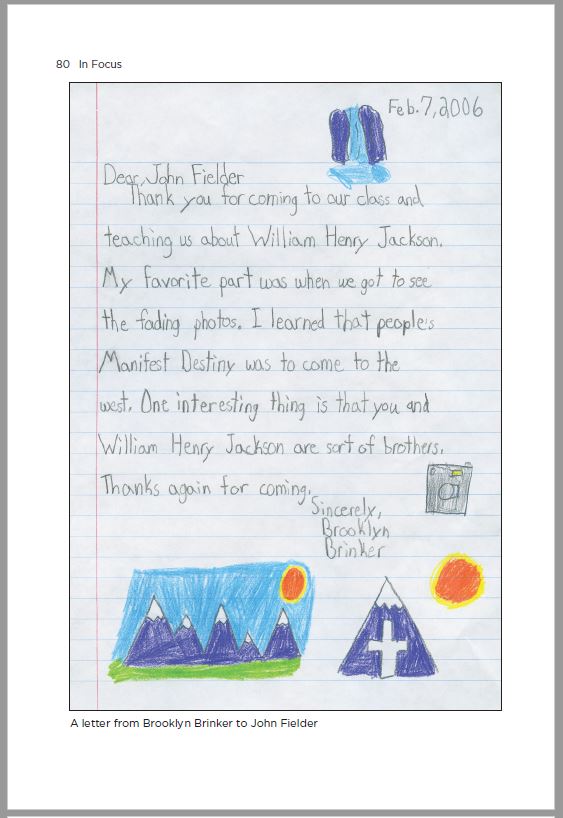 80 In Focus
Feb. 7, 2006
Dear, John Fielder
Thank you for coming to our class and
teaching us about William Henry Jackson.
My favorite part was when we got to see
the fading photos. I learned that people's
Manifest Destiny was to come to the
west. One interesting thing is that you and
William Henry Jackson are sort of brothers.
Thanks again for coming.
Sincerely,
Brooklyn
Brinker
A letter from Brooklyn Brinker to John Fielder